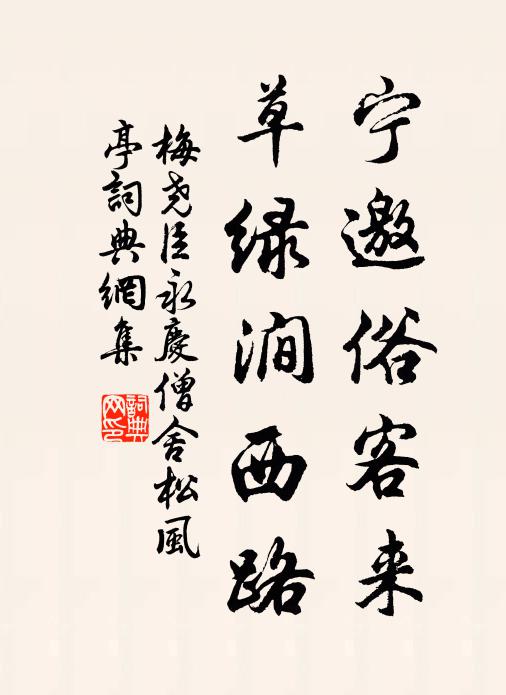 宁邀俗客来
草绿涧西路
梅尧臣永慶僧舍松風
亭詞典網集
詞典
网印